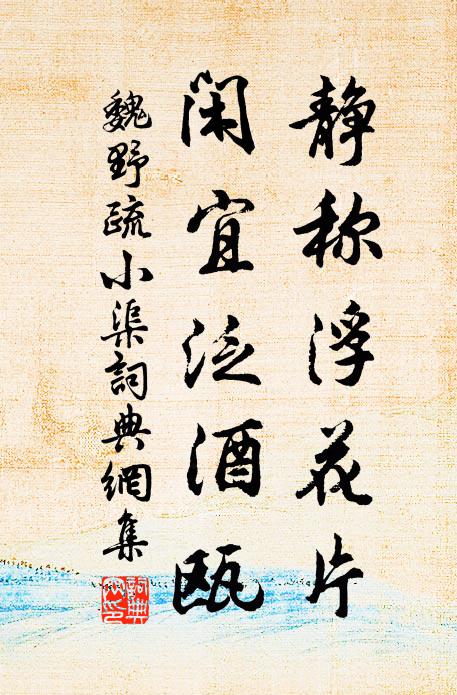 静称浮花片
闲宜泛酒瓯
魏野疏小渠詞典網集